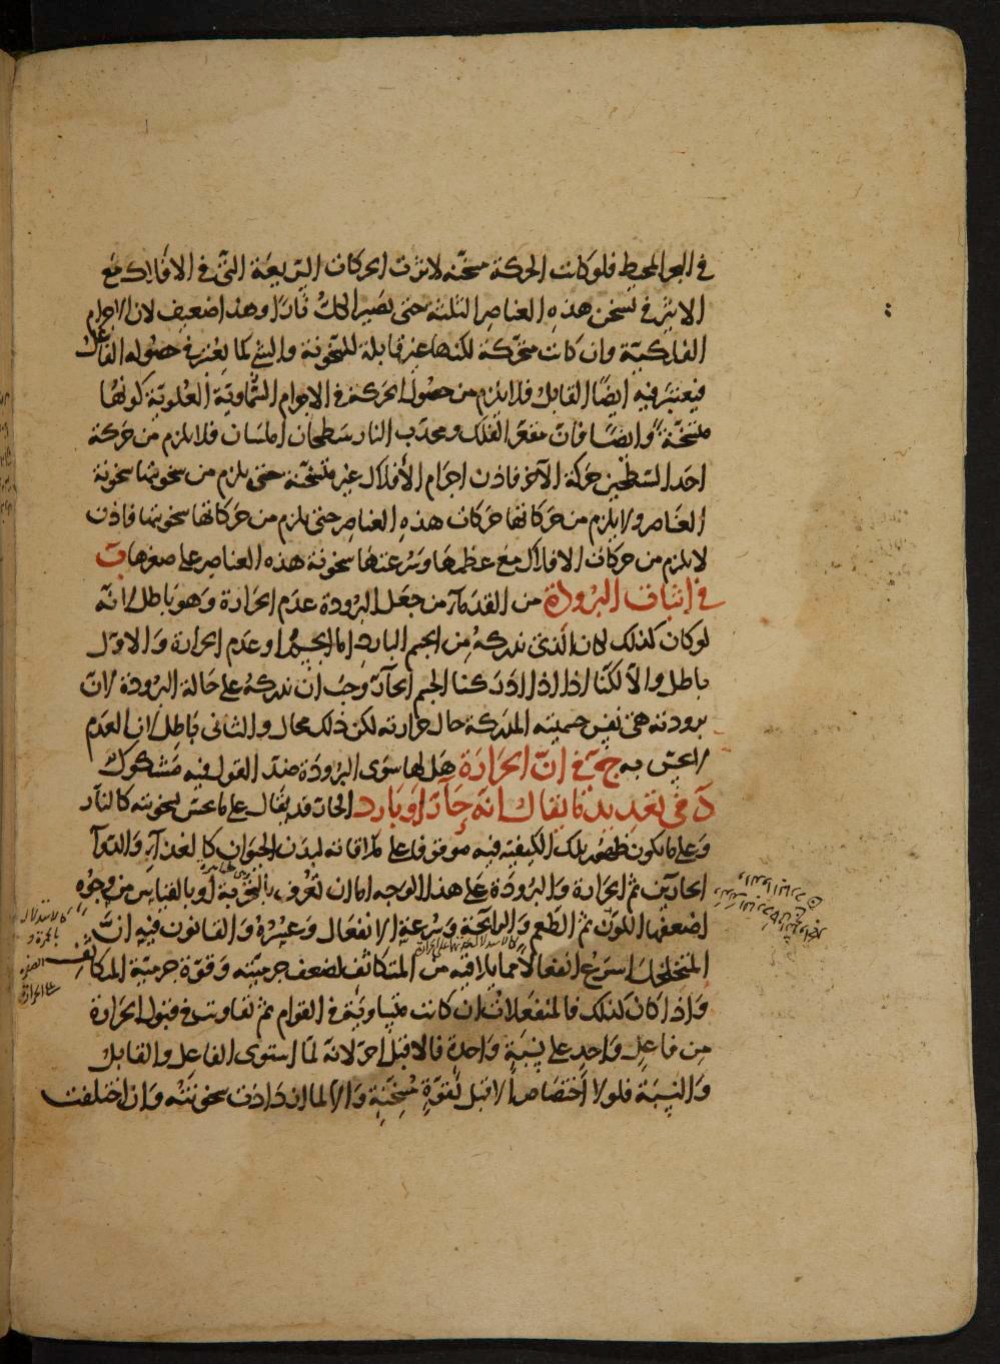 في البحر المحيط فلو كانت الحركة مسخنه لاثرت الحركات السريعة التي في الافلاك مع
الاثير في تسخن هذه العناصر الثلثه حتى تصير الكل نارا وهذا ضعيف لان الاجرام
الفلكية وان كانت متحركة لكنها غير قابلة للسخونة والشي كما يعتبر في حصوله الفاعل
فيعتبر فيه ايضا القابل فلا يلزم من حصول الحركة في الاجرام السماوية العلوية كونها
متسخنة وايضا فان مقعر الفلك ومحدب النار سطحان املسان فلا يلزم من حركة
احد السطحين حركة الآخر فاذن اجرام الأفلاك غير متسخنة حتى يلزم من سخونتها سخونة
العناصر ولا يلزم من حركاتها حركات هذه العناصر حتى يلزم من حركاتها سخونتها فاذن
لا يلزم من حركات الافلاك مع عظمها وسرعتها سخونة هذه العناصر على صغرها ب
في اثبات البرودة من القدمآء من جعل البرودة عدم الحرارة وهو باطل لانه
لو كان كذلك لكان الذي ندركه من الجسم البارد اما الجسم او عدم الحرارة والاول
باطل والا لكنا اذا ادركنا الجسم الحآر وجب ان ندركه على حالة البرودة لان
برودته هي نفس جسميته المدركة حال حرارته لكن ذلك محال والثاني باطل لان العدم
لا يحس به ج في ان الحرارة هل لها سوى البرودة ضد القول فيه مشكوك
د في تعديد ما يقال انه حآر او بارد الحار قد يقال على ما يحس بسخونته كالنآر
وعلى ما يكون ظهور تلك الكيفية فيه موقوفا على ملاقاته لبدن الحيوان كالغذآء والدوآ
الحارين ثم الحرارة والبرودة على هذا الوجه اما ان تعرف بالتجربة او بالقياس من وجوه
اضعفها اللون ثم الطعم والرآيحة وسرعة الانفعال وعسره والقانون فيه ان
المتخلخل اسرع انفعالا مما يلاقيه من المتكاثف لضعف جرميته وقوة جرمية المتكاثف
واذا كان كذلك فالمنفعلان ان كانت متساوية في القوام ثم تفاوتت في قبول الحرارة
من فاعل واحد على نسبة واحدة فالاقبل احر لانه لما استوى الفاعل والقابل
والنسبة فلولا اختصاص الاقبل بقوة مسخنة والا لما ازدادت سخونته وان اختلفت
كالاستدلال
بالحمرة و
الصفرة
على الحرارة